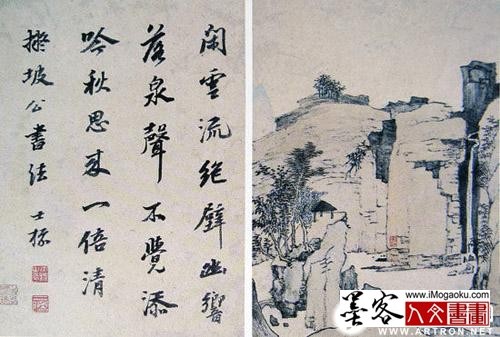 閑雲流絕壁幽響
落泉聲不覺添
吟秋思來一倍清
擬坡公書法 士標
墨客
www.iMogaoku.com
人文書畫
www.ARTRON.NET